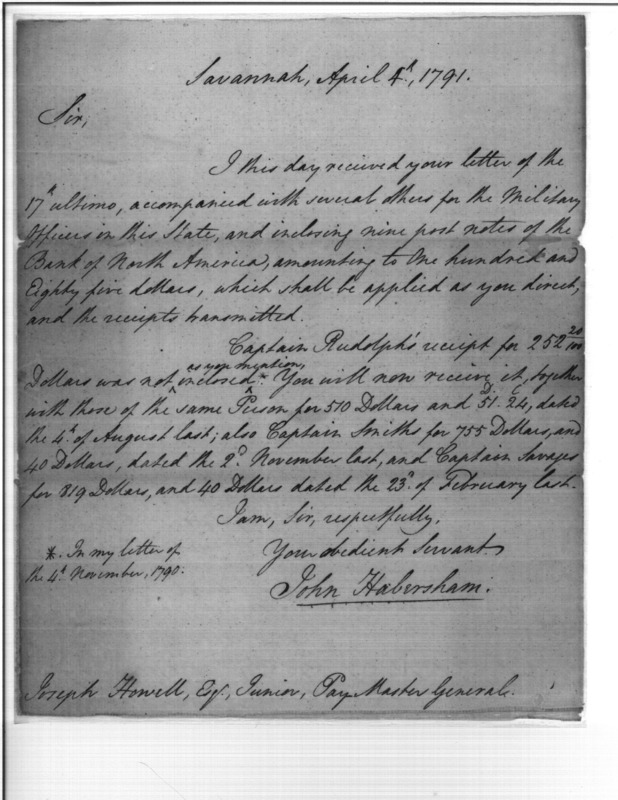 Savannah, April 4th, 1791.
Sir,
I this day received your letter of the
17th ultimo, accompanied with several others for the Military
Officers in this State, and inclosing nine post notes of the
Bank of North America, amounting to One hundred and
Eighty five dollars, which shall be applied as you direct,
and the receipts transmitted.
Captain Rudolph's receipt for 252 20/100
as you mention,
Dollars was not ^ inclosed.* You will now receive it, together
with those of the same Person for 510 Dollars and 51.24, dated
the 4th of August last; also Captain Smiths for 755 Dollars, and
40 Dollars, dated the 2d November last, and Captain Savages
for 819 Dollars, and 40 Dollars dated the 23d of February last.
I am, Sir, respectfully,
Your obedient Servant
John Habersham.
*. In my letter of
the 4th November, 1790.
Joseph Howell, Esqr, Junior, Pay Master General.